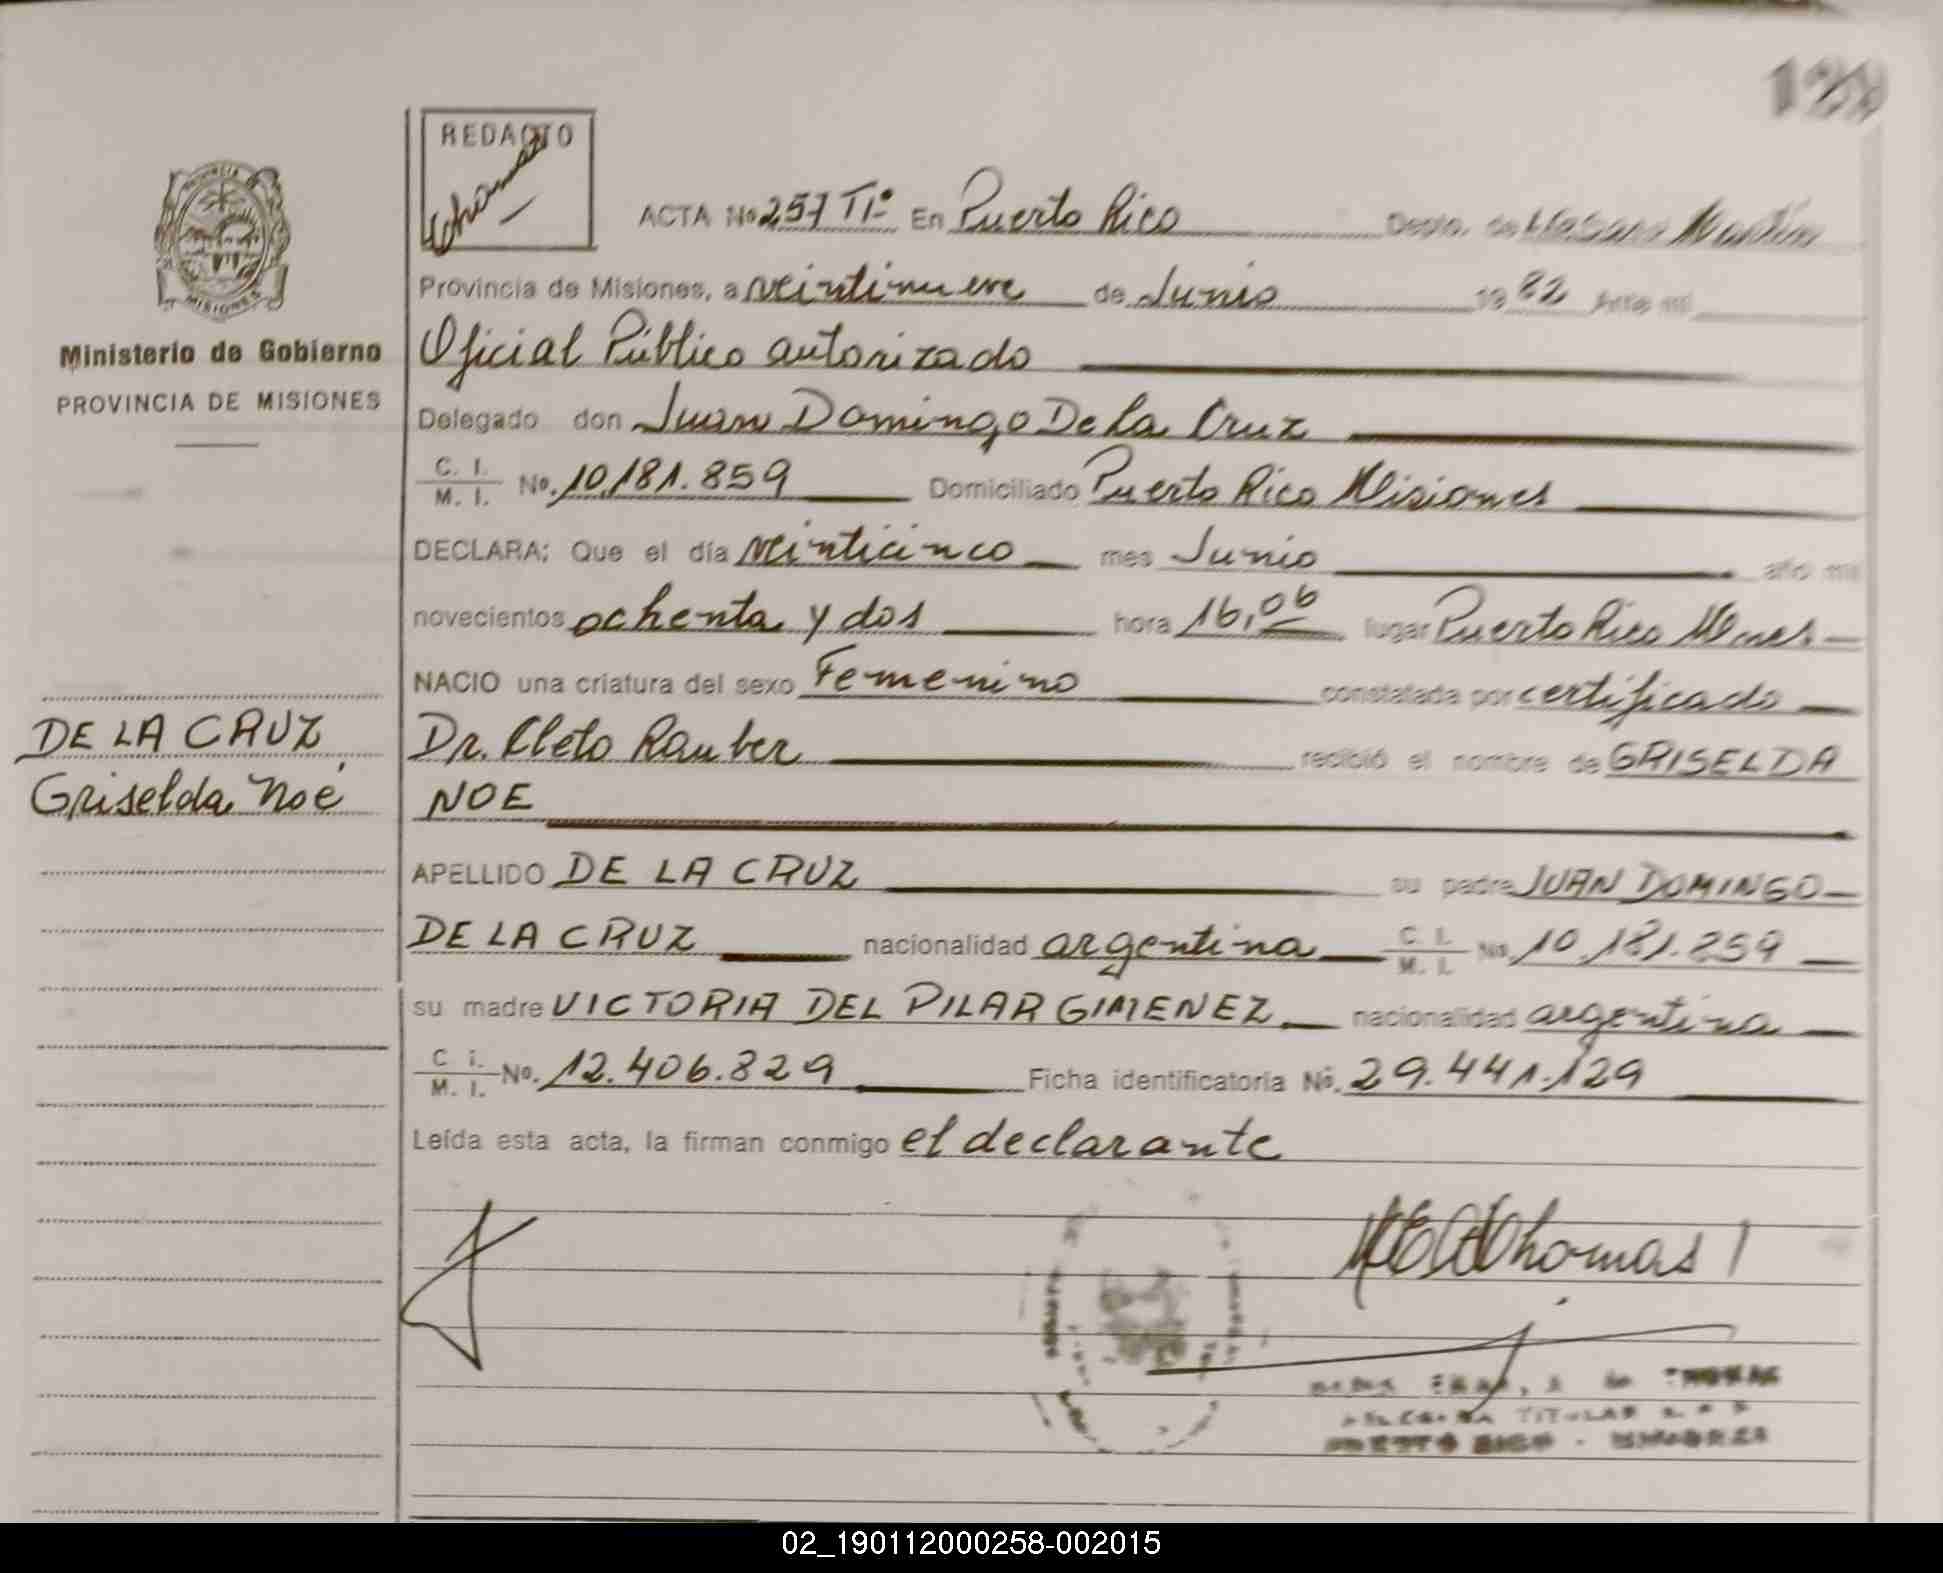 REDACTO
ACTA No 257 TI° En Puerto Rico Depto. de
Provincia de Misiones, a veintinueve de Junio 1982 Ante mi
Oficial Público autorizado
Ministerio de Gobierno
PROVINCIA DE MISIONES
MISIONES
Delegado don Juan Domingo De La Cruz
C. I.
M. I. No. 10.181.859 Domiciliado Puerto Rico Misiones
DECLARA: Que el día veinticinco mes Junio año mil
novecientos ochenta y dos hora 16,06 lugar Puerto Rico Mnes.
NACIO una criatura del sexo Femenino constatada por certificado
DE LA CRUZ
Griselda Noé
Dr. Cleto Rauber recibió el nombre de GRISELDA
NOE
APELLIDO DE LA CRUZ su padre JUAN DOMINGO
DE LA CRUZ nacionalidad argentina C. I. M. I. No. 10.181.859
su madre VICTORIA DEL PILAR GIMENEZ nacionalidad argentina
C. I.
M. I. No. 12.406.829 Ficha identificatoria No. 29.441.129
Leída esta acta, la firman conmigo el declarante
Thomas
THOMAS
TITULAR
PUERTO RICO - MISIONES
02_190112000258-002015